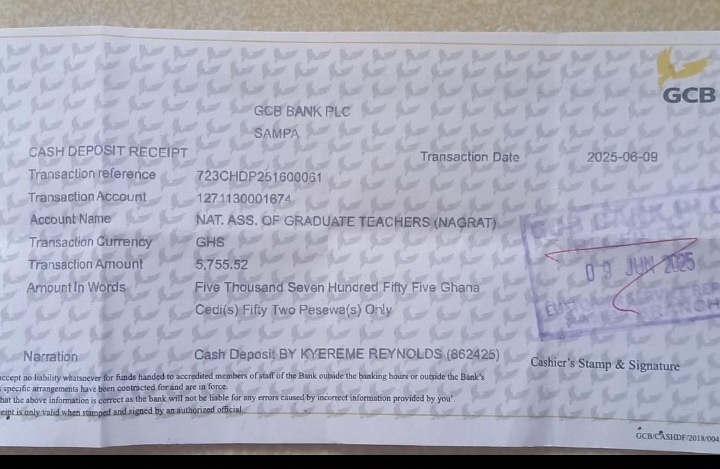 GCB
GCB BANK PLC
SAMPA
CASH DEPOSIT RECEIPT
Transaction Date 2025-06-09
Transaction reference 723CHDP251600061
Transaction Account 1271130001674
Account Name NAT. ASS. OF GRADUATE TEACHERS (NAGRAT)
Transaction Currency GHS
Transaction Amount 5,755.52
Amount In Words Five Thousand Seven Hundred Fifty Five Ghana
Cedi(s) Fifty Two Pesewa(s) Only
09 JUN 2025
Narration Cash Deposit BY KYEREME REYNOLDS (862425)
Cashier's Stamp & Signature
accept no liability whatsoever for funds handed to accredited members of staff of the Bank outside the banking hours or outside the Bank's
specific arrangements have been contracted for and are in force.
hat the above information is correct as the bank will not be liable for any errors caused by incorrect information provided by you'.
eipt is only valid when stamped and signed by an authorized official.
GCB/CASHDF/2018/004